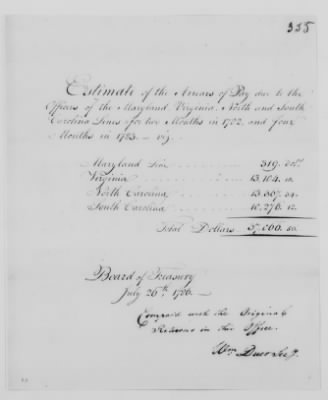 355
Estimate of the Arrears of Pay due to the
Officers of the Maryland, Virginia, North and South
Carolina Lines for two Months in 1782, and four
Months in 1783. — viz.
Maryland Line
Virginia 13,104.
North Carolina 13,307.
South Carolina 10,276. 12.
Total Dollars 37,000.
Board of Treasury
July 26th. 1786. —
Compared with the Original &
Returns in this Office.
Wm Duer Secy.